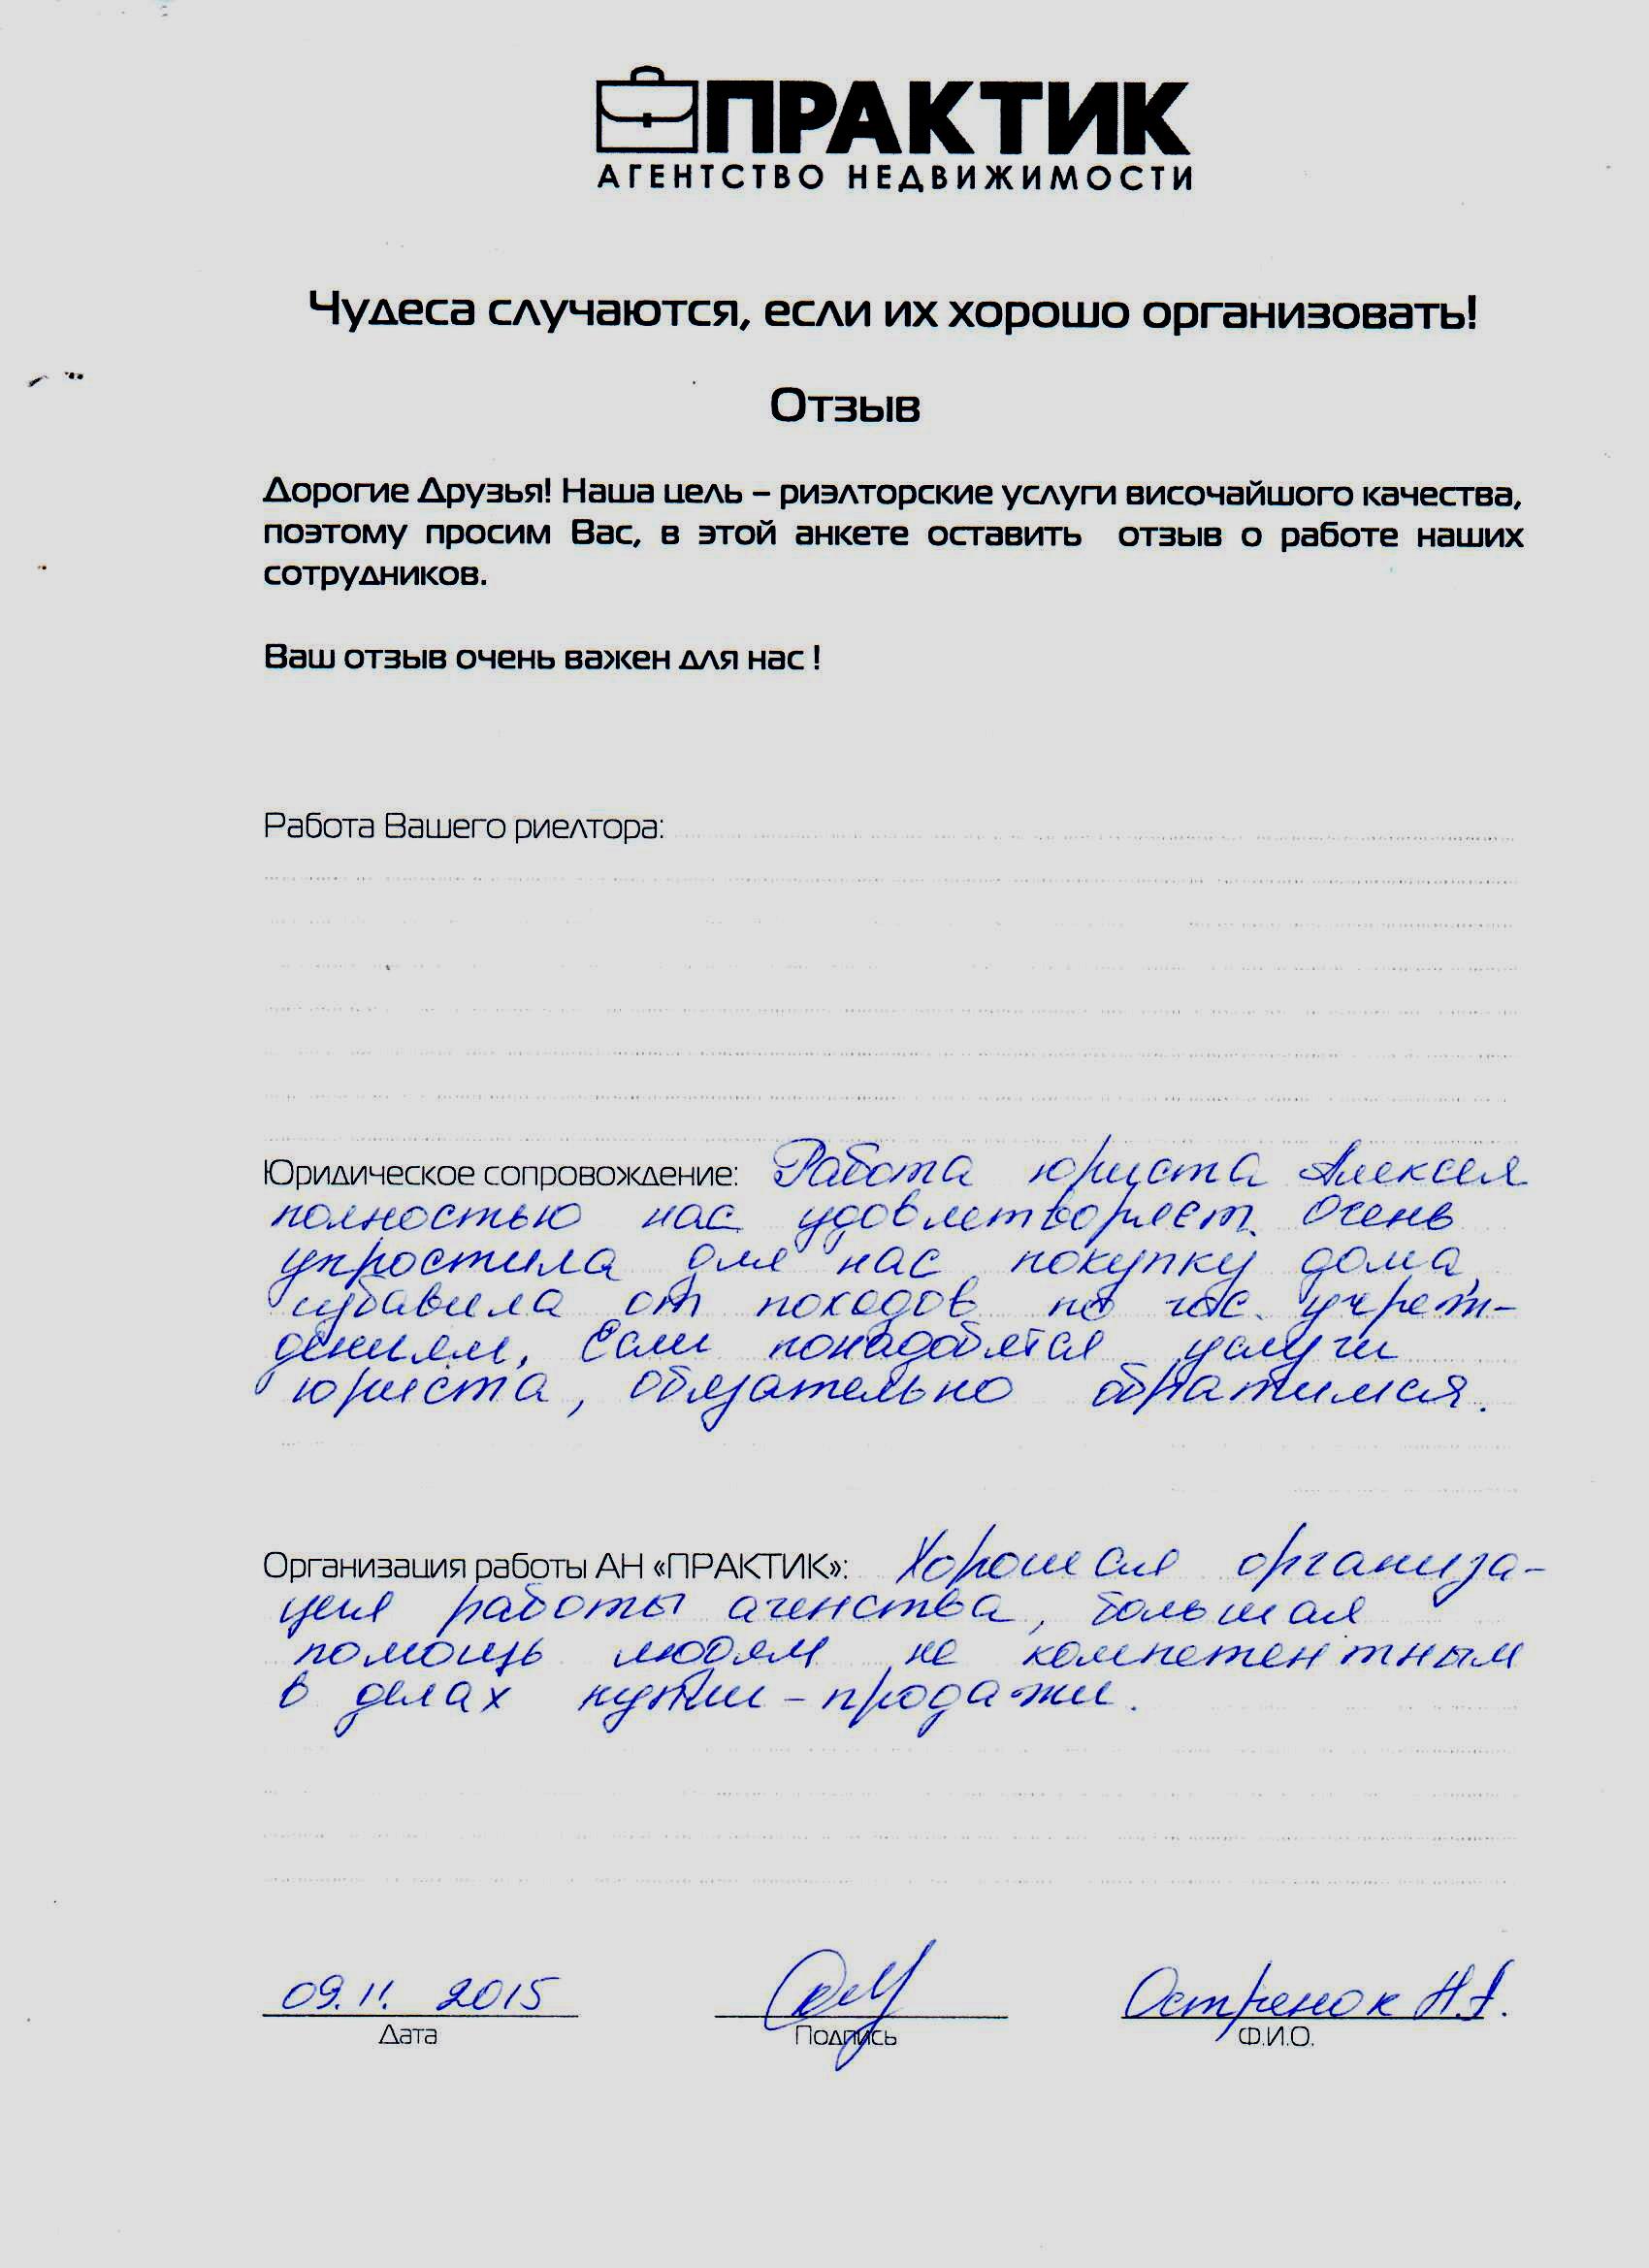 ПРАКТИК
АГЕНТСТВО НЕДВИЖИМОСТИ
Чудеса случаются, если их хорошо организовать!
Отзыв
Дорогие Друзья! Наша цель – риэлторские услуги височайшого качества,
поэтому просим Вас, в этой анкете оставить отзыв о работе наших
сотрудников.
Ваш отзыв очень важен для нас !
Работа Вашего риелтора:
Юридическое сопровождение: Работа юриста Алексея
полностью нас удовлетворяет. Очень
упростила для нас покупку дома,
избавила от походов по гос. учреж-
дениям, Если понадобятся услуги
юриста, обязательно обратимся.
Организация работы АН «ПРАКТИК»: Хорошая организа-
ция работы агенства, большая
помощь людям не компетентным
в делах купли-продажи.
09.11. 2015 Остренок Н.А.
Дата Подпись Ф.И.О.